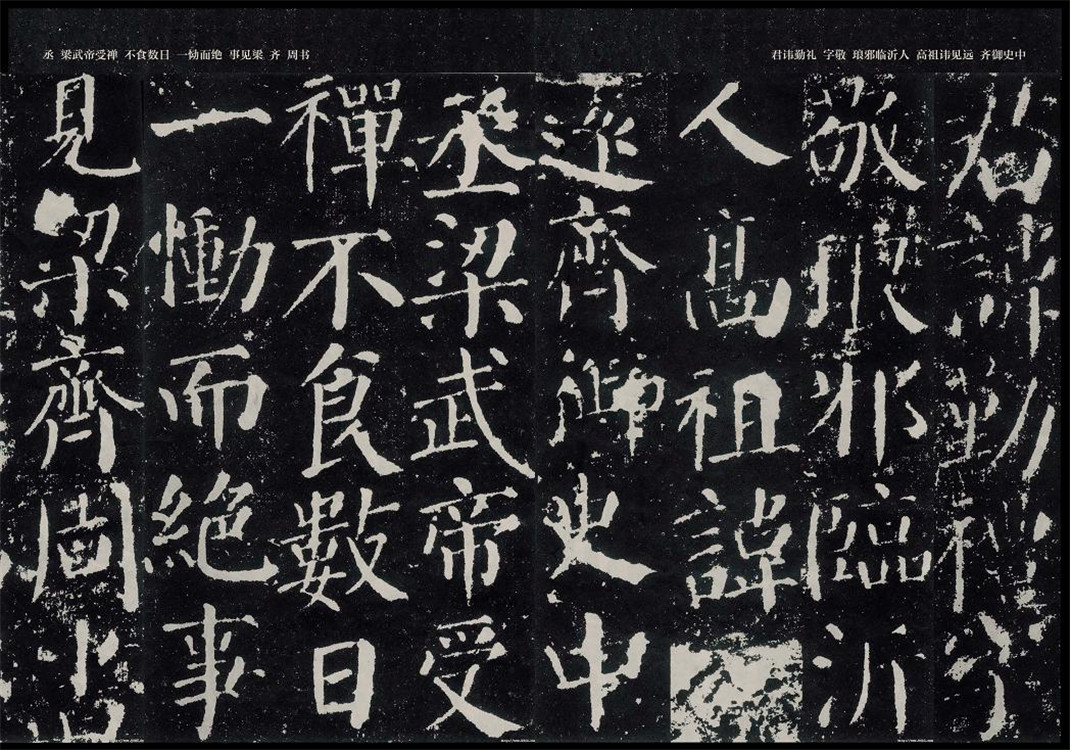 君讳勤礼 字敬 琅邪临沂人 高祖讳见远 齐御史中
丞 梁武帝受禅 不食数日 一恸而绝 事见梁 齐 周书
君諱勤禮字
敬琅邪臨沂
人高祖諱
遠齊御史中
丞梁武帝受
禪不食數日
一慟而絶事
見梁齊周書